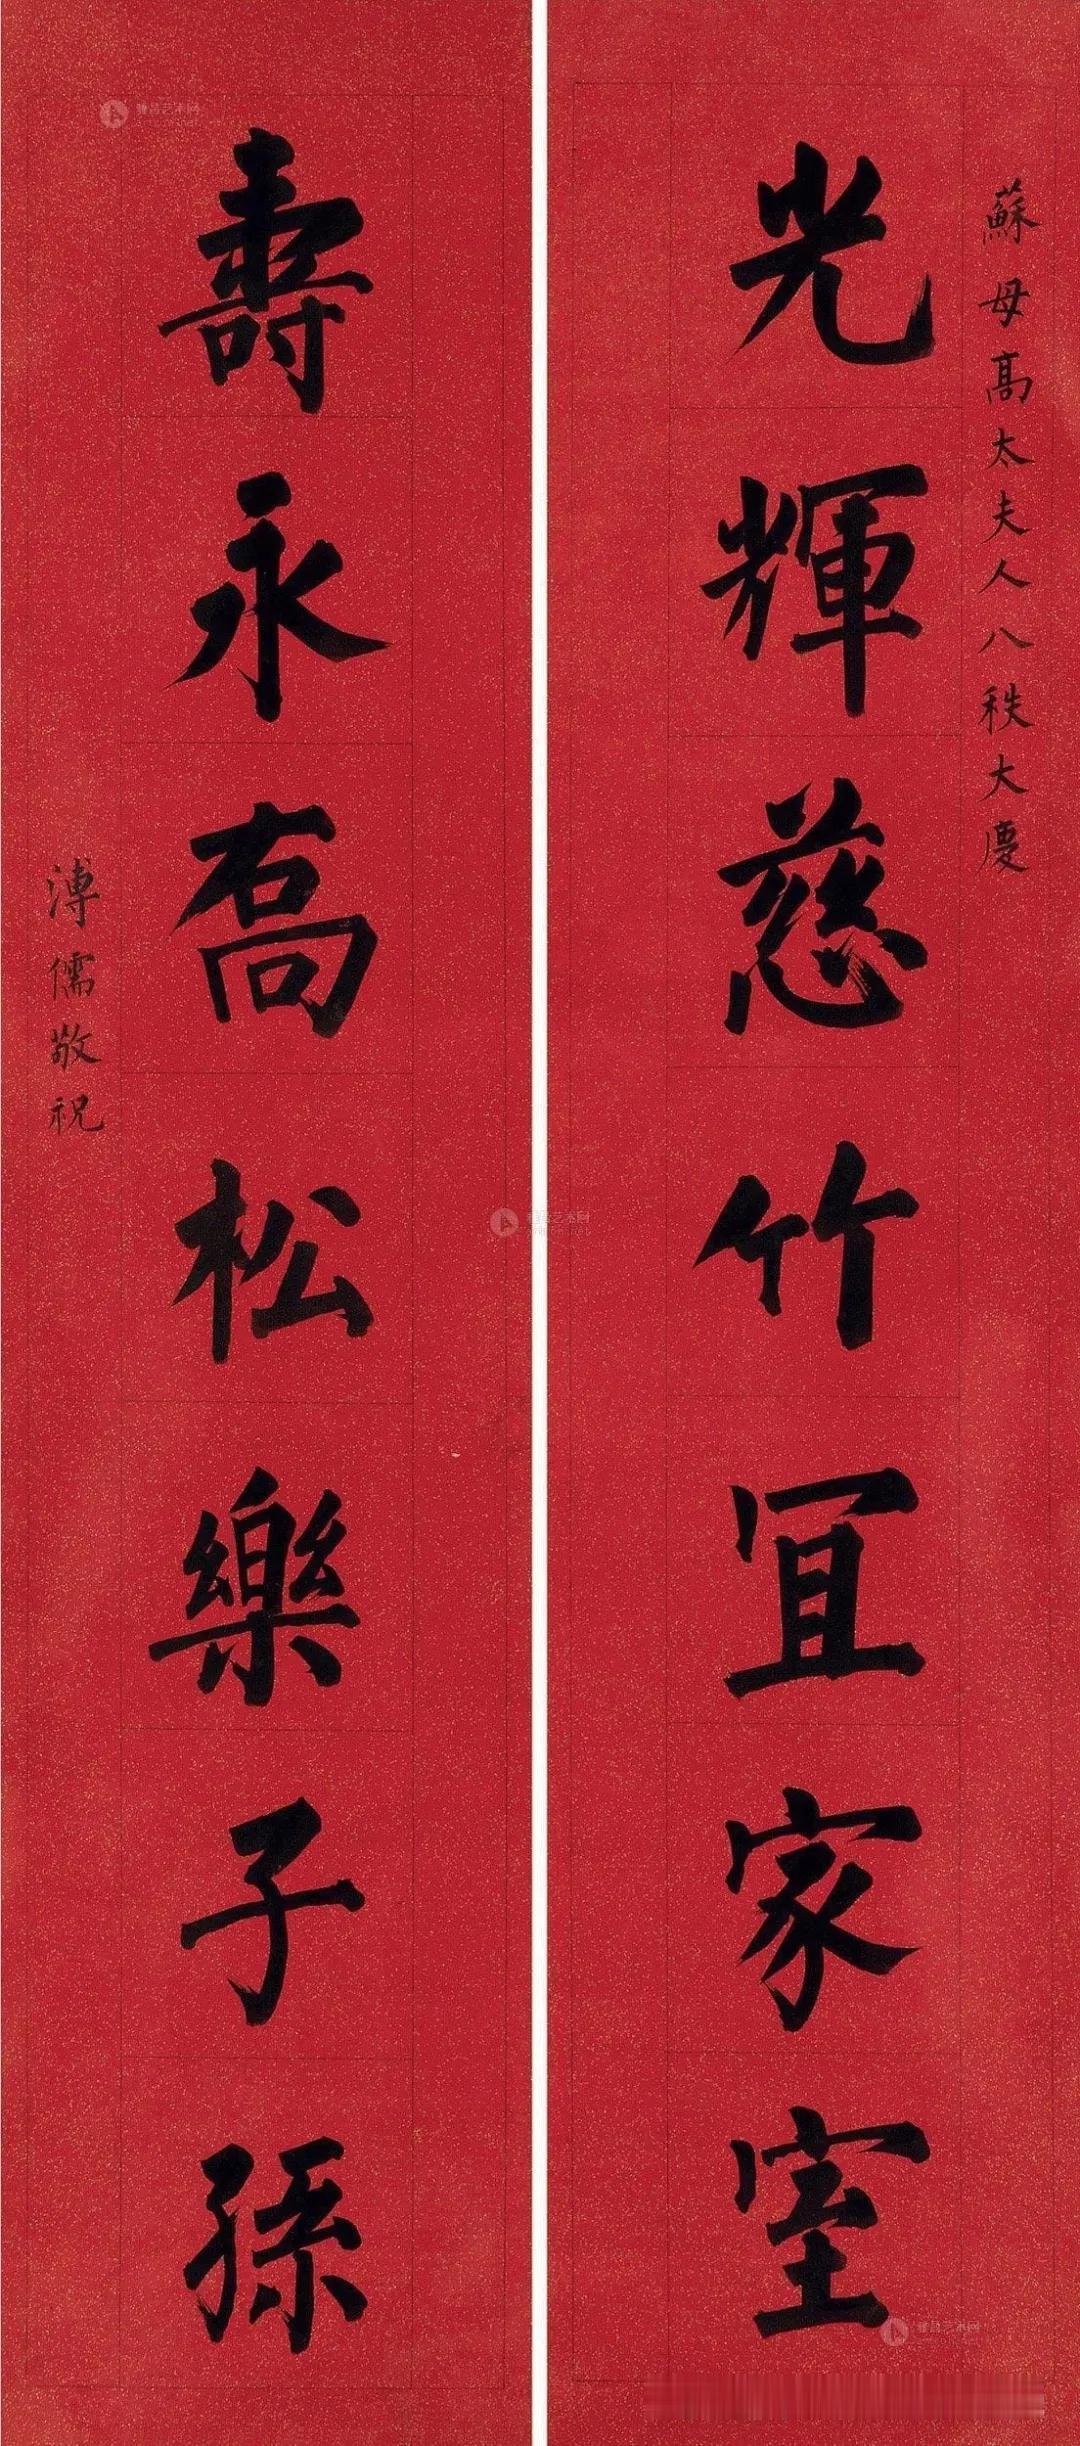 蘇母高太夫人八秩大慶
光輝慈竹宜家室
壽永喬松樂子孫
溥儒敬祝
雅昌艺术网